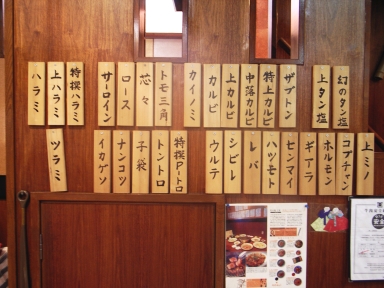 幻のタン塩
上タン塩
ザブトン
特上カルビ
中落カルビ
上カルビ
カルビ
カイノミ
トモ三角
芯々
ロース
サーロイン
特撰ハラミ
上ハラミ
ハラミ
上ミノ
コブチャン
ホルモン
ギアラ
センマイ
ハツモト
レバー
シビレ
ウルテ
特撰Pートロ
トントロ
子袋
ナンコツ
イカゲソ
ツラミ